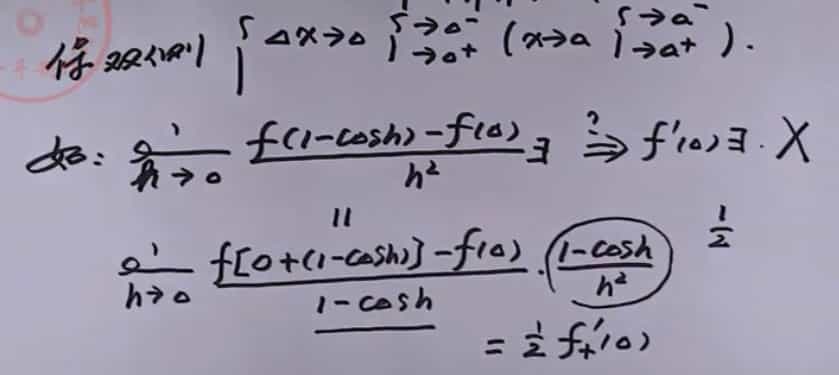 保双侧 { Δx→0 { →0⁻ →0⁺ (x→a { →a⁻ →a⁺ ).
如: lim h→0 f(1-cosh)-f(0) / h² ∃ ?⇒ f'(0)∃. X
=
lim h→0 f[0+(1-cosh)]-f(0) / 1-cosh · (1-cosh / h²) 1/2
= 1/2 f₊'(0)